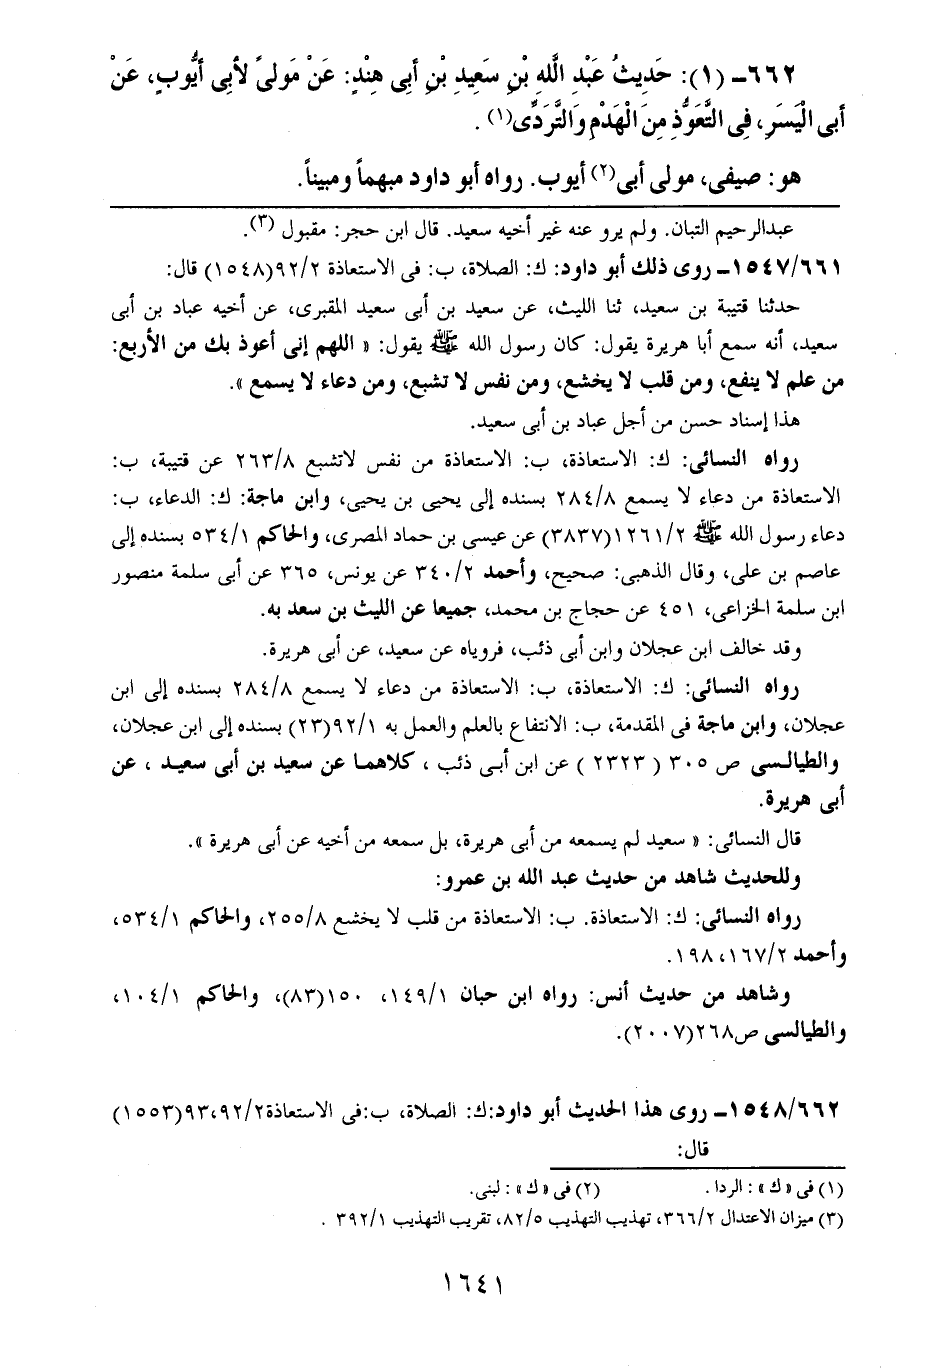 ٦٦٢ـ (١): حَدِيثُ عَبْدِ اللَّهِ بْنِ سَعِيدِ بْنِ أبِى هِنْدٍ: عَنْ مَولىً لأبِى أيُّوبٍ، عَنْ
أبِى الْيَسَرِ، فِى التَّعَوُّذِ مِنَ الْهَدْمِ وَالتَّرَدِّى(١) .
هو: صيفى، مولى أبى(٢) أيوب. رواه أبو داود مبهماً ومبيناً.
عبدالرحيم التبان. ولم يرو عنه غير أخيه سعيد. قال ابن حجر: مقبول (٣).
١٥٤٧/٦٦١ـ روى ذلك أبو داود: ك: الصلاة، ب: فى الاستعاذة ٩٢/٢(١٥٤٨) قال:
حدثنا قتيبة بن سعيد، ثنا الليث، عن سعيد بن أبى سعيد المقبرى، عن أخيه عباد بن أبى
سعيد، أنه سمع أبا هريرة يقول: كان رسول الله ﷺ يقول: « اللهم إنى أعوذ بك من الأربع:
من علم لا ينفع، ومن قلب لا يخشع، ومن نفس لا تشبع، ومن دعاء لا يسمع ».
هذا إسناد حسن من أجل عباد بن أبى سعيد.
رواه النسائى: ك: الاستعاذة، ب: الاستعاذة من نفس لاتشبع ٢٦٣/٨ عن قتيبة، ب:
الاستعاذة من دعاء لا يسمع ٢٨٤/٨ بسنده إلى يحيى بن يحيى، وابن ماجة: ك: الدعاء، ب:
دعاء رسول الله ﷺ ١٢٦١/٢(٣٨٣٧) عن عيسى بن حماد المصرى، والحاكم ٥٣٤/١ بسنده إلى
عاصم بن على، وقال الذهبى: صحيح، وأحمد ٣٤٠/٢ عن يونس، ٣٦٥ عن أبى سلمة منصور
ابن سلمة الخزاعى، ٤٥١ عن حجاج بن محمد، جميعا عن الليث بن سعد به.
وقد خالف ابن عجلان وابن أبى ذئب، فروياه عن سعيد، عن أبى هريرة.
رواه النسائى: ك: الاستعاذة، ب: الاستعاذة من دعاء لا يسمع ٢٨٤/٨ بسنده إلى ابن
عجلان، وابن ماجة فى المقدمة، ب: الانتفاع بالعلم والعمل به ٩٢/١(٢٣) بسنده إلى ابن عجلان،
والطيالسى ص ٣٠٥ ( ٢٣٢٣ ) عن ابن أبى ذئب ، كلاهما عن سعيد بن أبى سعيد ، عن
أبى هريرة.
قال النسائى: « سعيد لم يسمعه من أبى هريرة، بل سمعه من أخيه عن أبى هريرة ».
وللحديث شاهد من حديث عبد الله بن عمرو:
رواه النسائى: ك: الاستعاذة. ب: الاستعاذة من قلب لا يخشع ٢٥٥/٨، والحاكم ٥٣٤/١،
وأحمد ١٦٧/٢، ١٩٨.
وشاهد من حديث أنس: رواه ابن حبان ١٤٩/١، ١٥٠(٨٣)، والحاكم ١٠٤/١،
والطيالسى ص٢٦٨(٢٠٠٧).
١٥٤٨/٦٦٢ـ روى هذا الحديث أبو داود:ك: الصلاة، ب:فى الاستعاذة٩٣،٩٢/٢(١٥٥٣)
قال:
(١) فى «ك» : الردا . (٢) فى «ك» : لبنى.
(٣) ميزان الاعتدال ٣٦٦/٢، تهذيب التهذيب ٨٢/٥، تقريب التهذيب ٣٩٢/١ .
١٦٤١